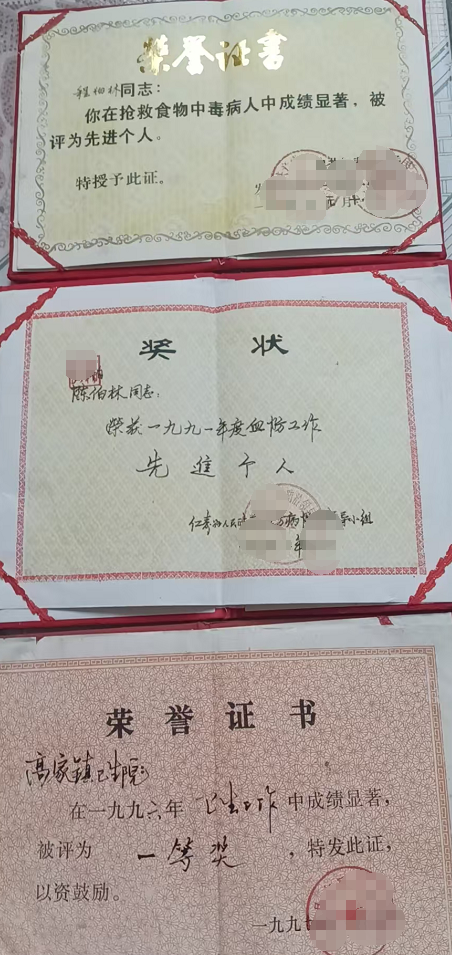 荣誉证书
程伯林同志：
你在抢救食物中毒病人中成绩显著，被
评为先进个人。
特授予此证。
奖状
陈伯林同志：
荣获一九九一年度血防工作
先进个人
仁寿
导小组
年
荣誉证书
高家镇卫生院
在一九九六年卫生工作中成绩显著，
被评为一等奖，特发此证，
以资鼓励。
一九九